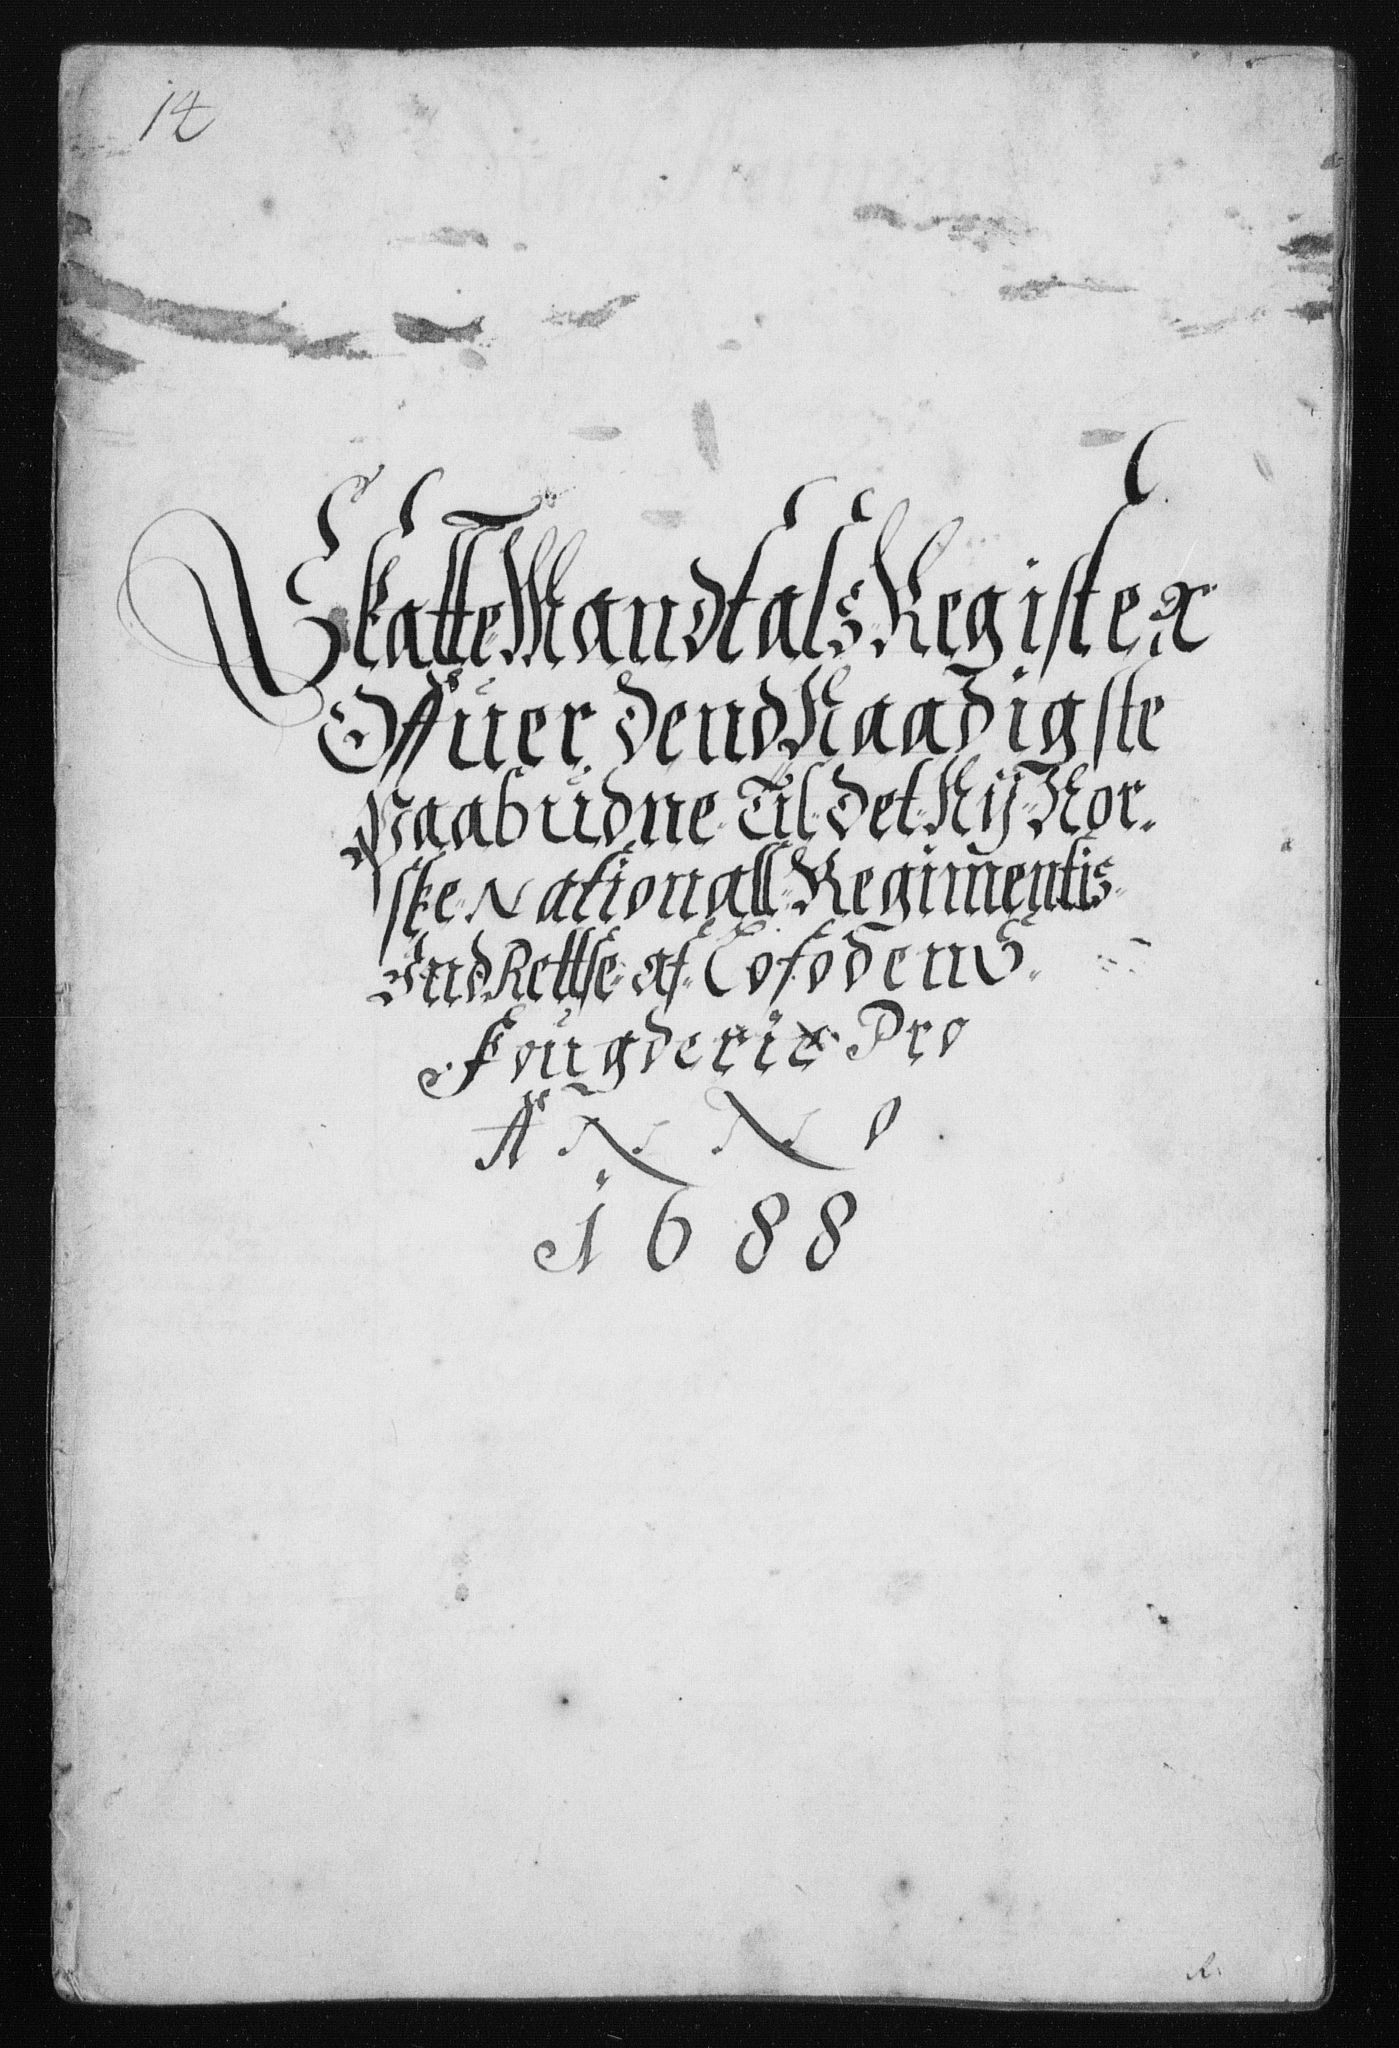 14
Skatte Mandtals Register
Offuer dend Naadigste
paabudne Til det Ny Nor-
ske Nationall Regimentis
IndRettse af Lofodens
Fougderie Pro
ANNO
1688